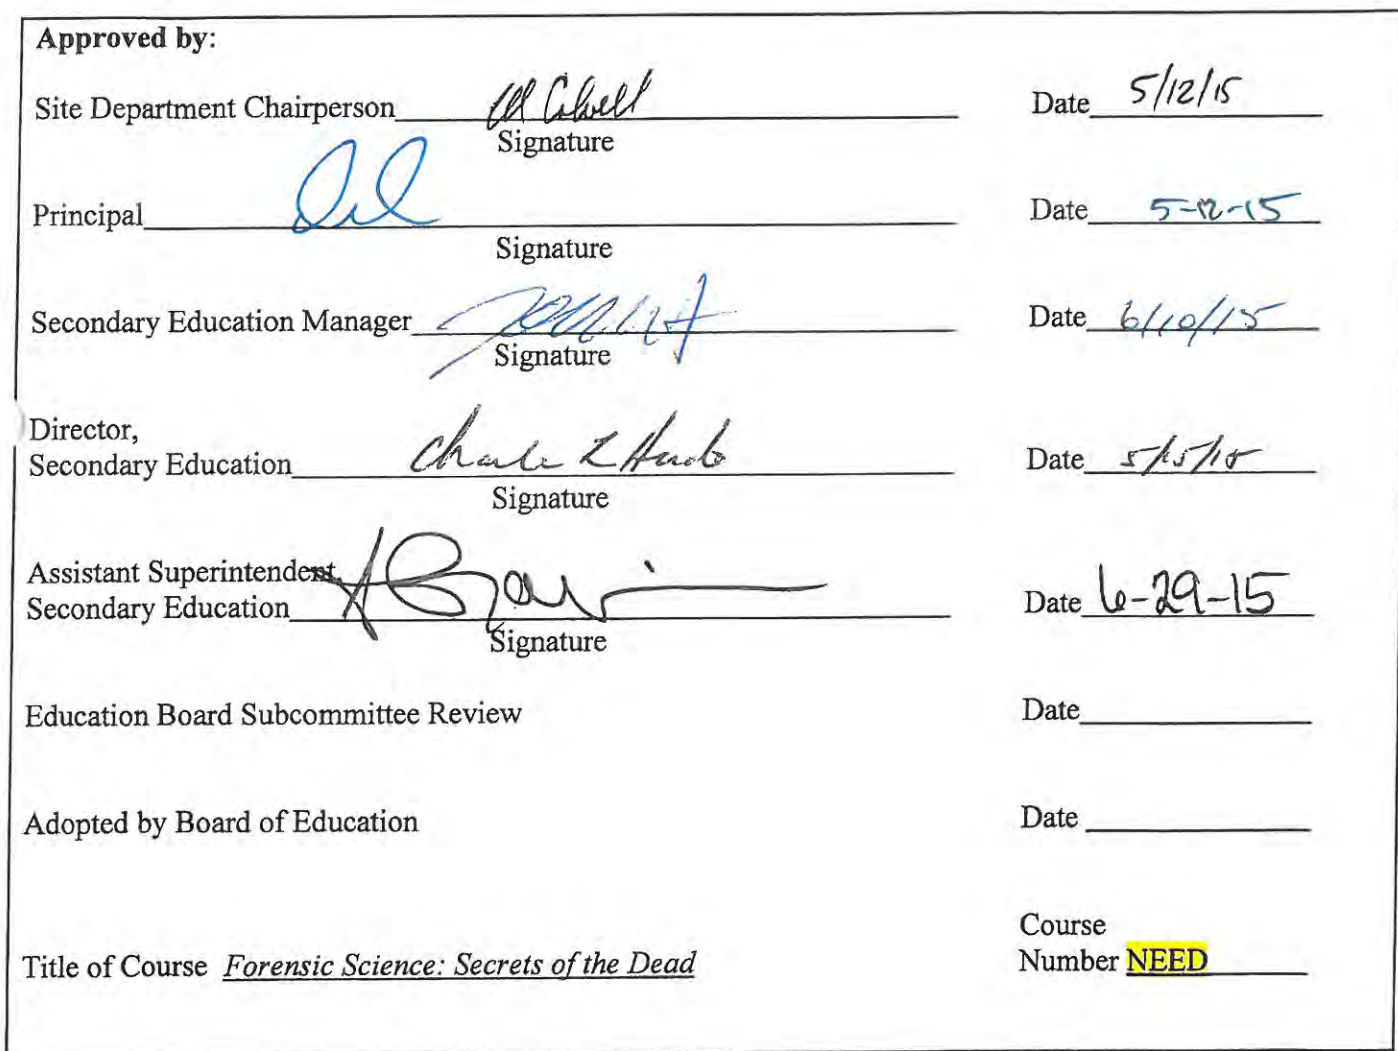 Approved by:
Site Department Chairperson Date 5/12/15
Signature
Principal Date 5-12-15
Signature
Secondary Education Manager Date 6/10/15
Signature
Director,
Secondary Education Date 5/15/15
Signature
Assistant Superintendent
Secondary Education Date 6-29-15
Signature
Education Board Subcommittee Review Date
Adopted by Board of Education Date
Course
Title of Course Forensic Science: Secrets of the Dead Number NEED